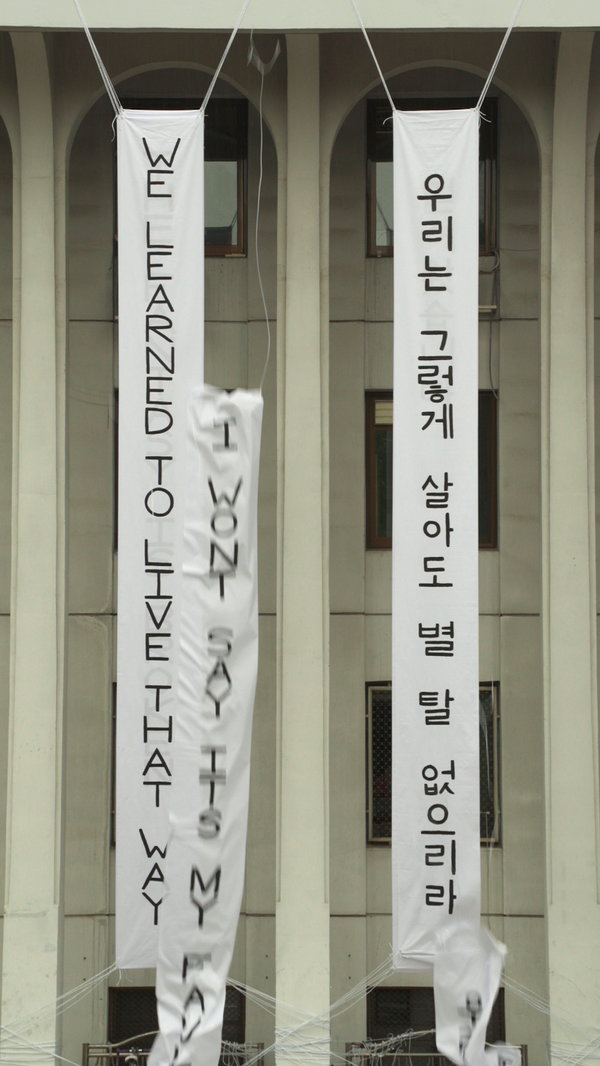 WE LEARNED TO LIVE THAT WAY
I WONT SAY ITS MY
우리는 그렇게 살아도 별 탈 없으리라